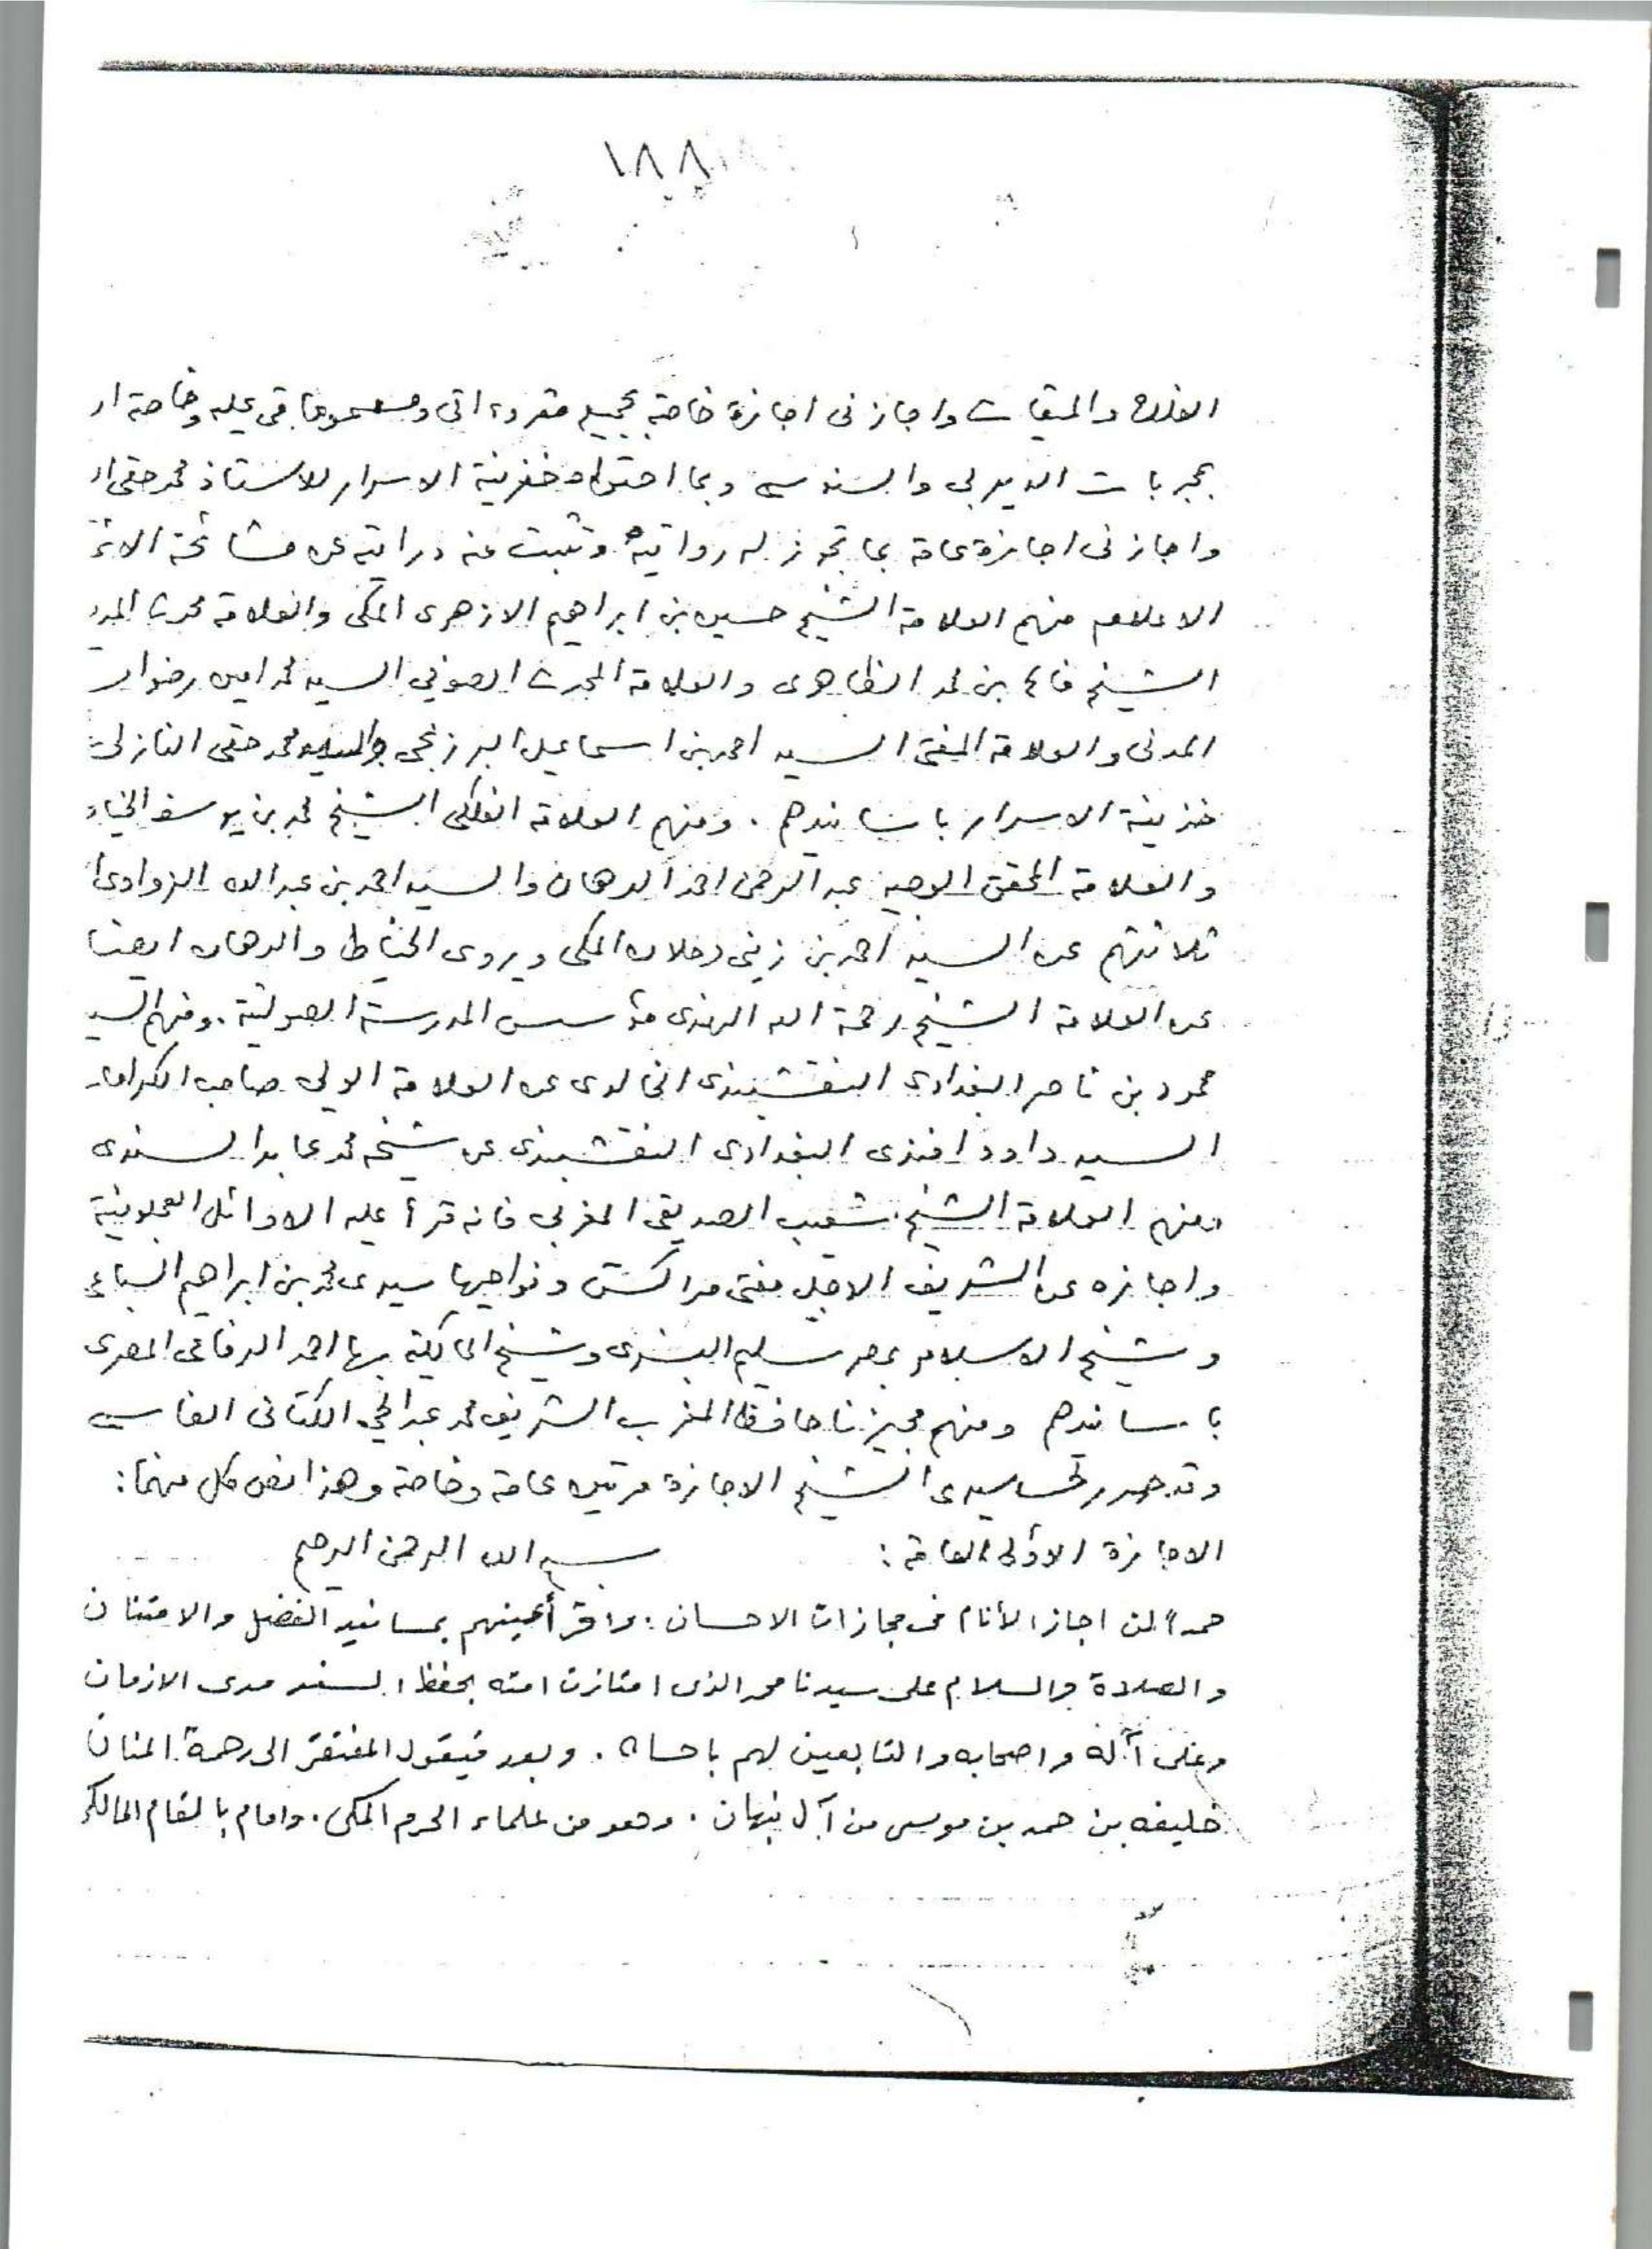 ١٨٨
والميقات واجازنى اجازة خاصة بجميع مقروءاتى ومسموعاتى عليه وخاصة
بمجربات الديربى والسنوسى وبما احتواه خزينة الاسرار للاستاذ محمد حقى
واجازنى اجازة عامة بما تجوز له روايته وتثبت عنه درايته عن مشائخة
الاعلام منهم العلامة الشيخ حسين بن ابراهيم الازهرى المكى والعلامة محدث
الشيخ فالح بن محمد الظاهرى والعلامة المحدث الصوفي السيد محمد امين رضوان
المدنى والعلامة المفتى السيد احمد بن اسماعيل البرزنجى والسيد محمد حقى النازلى
خزينة الاسرار باسانيدهم . ومنهم العلامة الفلكى الشيخ محمد بن يوسف
والعلامة المحقق الوجيه عبد الرحمن احمد الدهان والسيد احمد بن عبد الله الزواوى
ثلاثتهم عن السيد احمد بن زينى دحلان المكى ويروى الخياط والدهان ايضا
عن العلامة الشيخ رحمة الله الهندى مؤسس المدرسة الصولتية . ومنهم السيد
محمود بن ناصر البغدادى النقشبندى الخالدى عن العلامة الولى صاحب
السيد داود افندى البغدادى النقشبندى عن شيخه محمد عابد السندى
ومنهم العلامة الشيخ شعيب الصديقى المغربى فانه قرأ عليه الاوائل العجلونية
واجازه عن الشريف الاجل مفتى مراكش ونواحيها سيدى محمد بن ابراهيم السباعى
وشيخ الاسلام بمصر سليم البشرى وشيخ المالكية بها احمد الرفاعى المصرى
باسانيدهم ومنهم مجيزنا حافظ المغرب الشريف محمد عبد الحى الكتانى الفاسى
وقد سيدى الشيخ الاجازة مرتين عامة وخاصة وهذا نص كل منهما :
الاجازة الاولى العامة : بسم الله الرحمن الرحيم
حمداً لمن اجاز الأنام فى مجازات الاحسان . واقر أعينهم بمسانيد الفضل والامتنان
والصلاة والسلام على سيدنا محمد الذى امتازت امته بحفظ السند مدى الازمان
وعلى آله واصحابه والتابعين لهم باحسان . وبعد فيقول المفتقر الى رحمة المنان
خليفه بن حمد بن موسى من آل نبهان . وهو من علماء الحرم المكى . وامام بالمقام